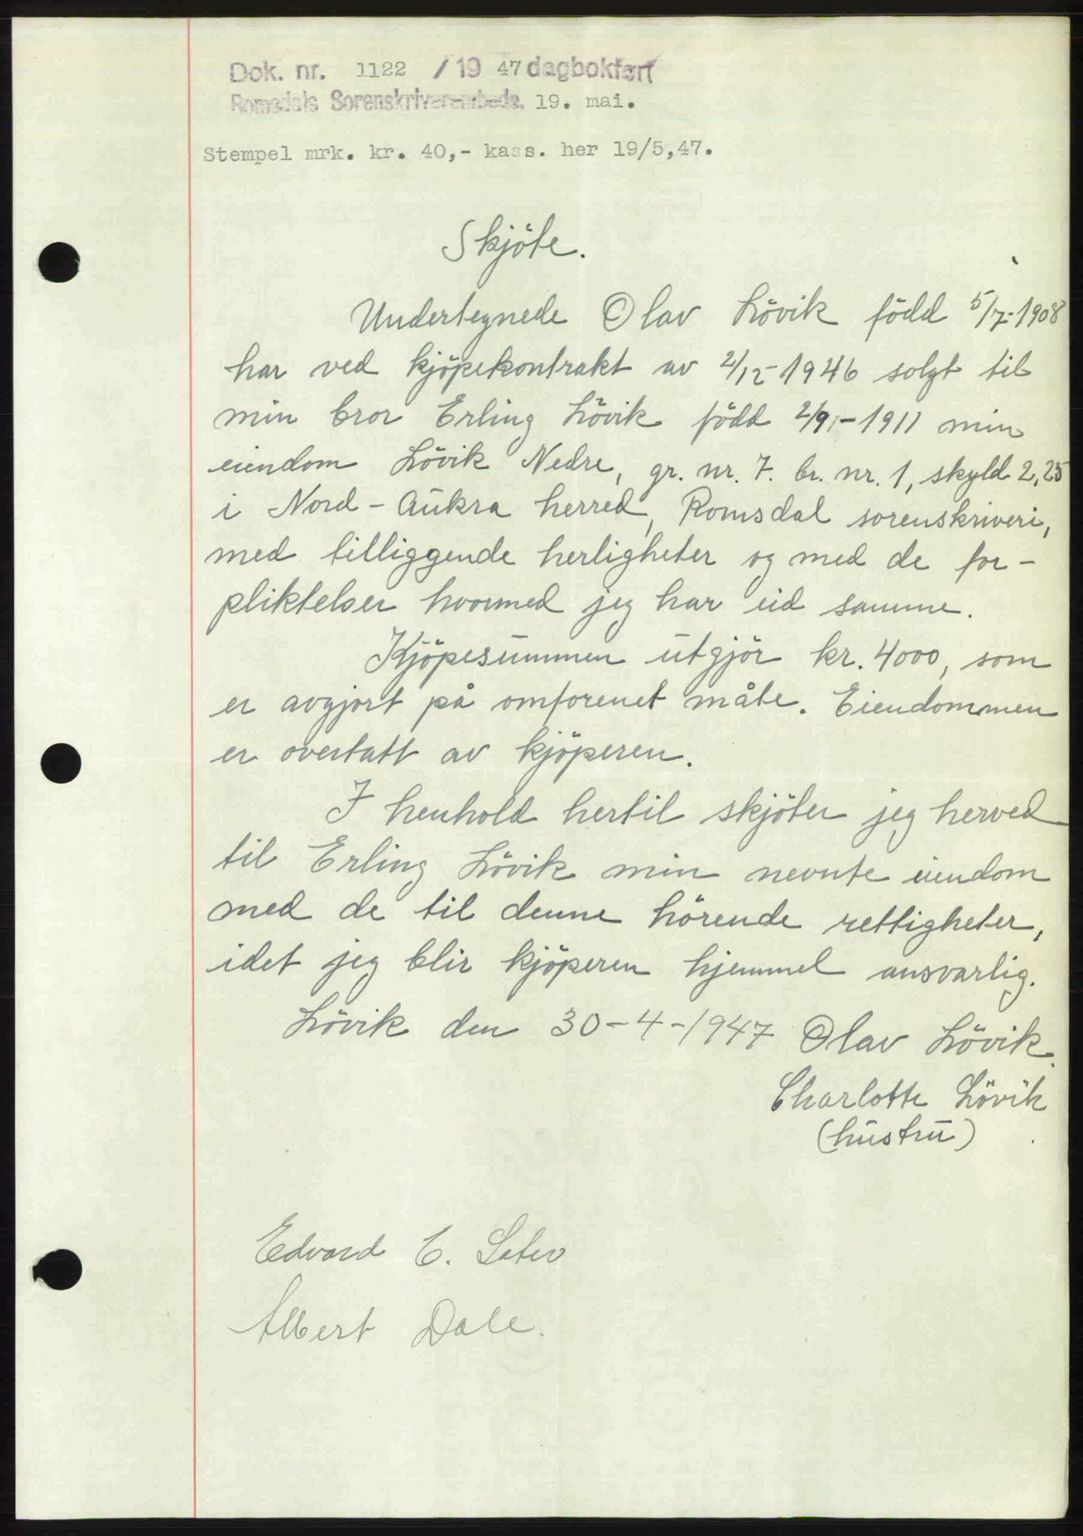 Dok. nr. 1122 / 19 47 dagbokført
Romsdals Sorenskriverembede. 19. mai.
Stempel mrk. kr. 40,- kass. her 19/5,47.
Skjöte.
Undertegnede Olav Lövik född 5/7-1908
har ved kjöpekontrakt av 2/12-1946 solgt til
min bror Erling Lövik född 2/9-1911 min
eiendom Lövik Nedre, gr. nr. 7. br. nr. 1, skyld 2,25
i Nord-Aukra herred, Romsdal sorenskriveri,
med tilliggende herligheter og med de for-
pliktelser hvormed jeg har eid samme.
Kjöpesummen utgjör kr. 4000, som
er avgjort på omforenet måte. Eiendommen
er overtatt av kjöperen.
I henhold hertil skjöter jeg herved
til Erling Lövik min nevnte eiendom
med de til denne hörende rettigheter,
idet jeg blir kjöperen hjemmel ansvarlig.
Lövik den 30-4-1947 Olav Lövik.
Charlotte Lövik
(hustru)
Edvard E.
Albert Dale.